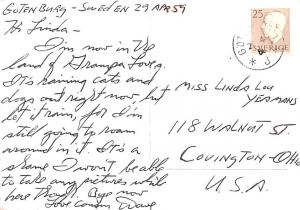 GOTENBURG - SWEDEN 29 APR 59
Hi Linda -
I'm now in the
land of Grampa
It's raining cats and
dogs out right now, but
let it rain, for I'm
still going to roam
around in it. It's a
shame I won't be able
to take any pictures while
here though. Bye now
Love cousin Dave
25
SVERIGE
MISS LINDA LOU
YEOMANS
118 WALNUT ST.
COVINGTON - OHIO
U.S.A.